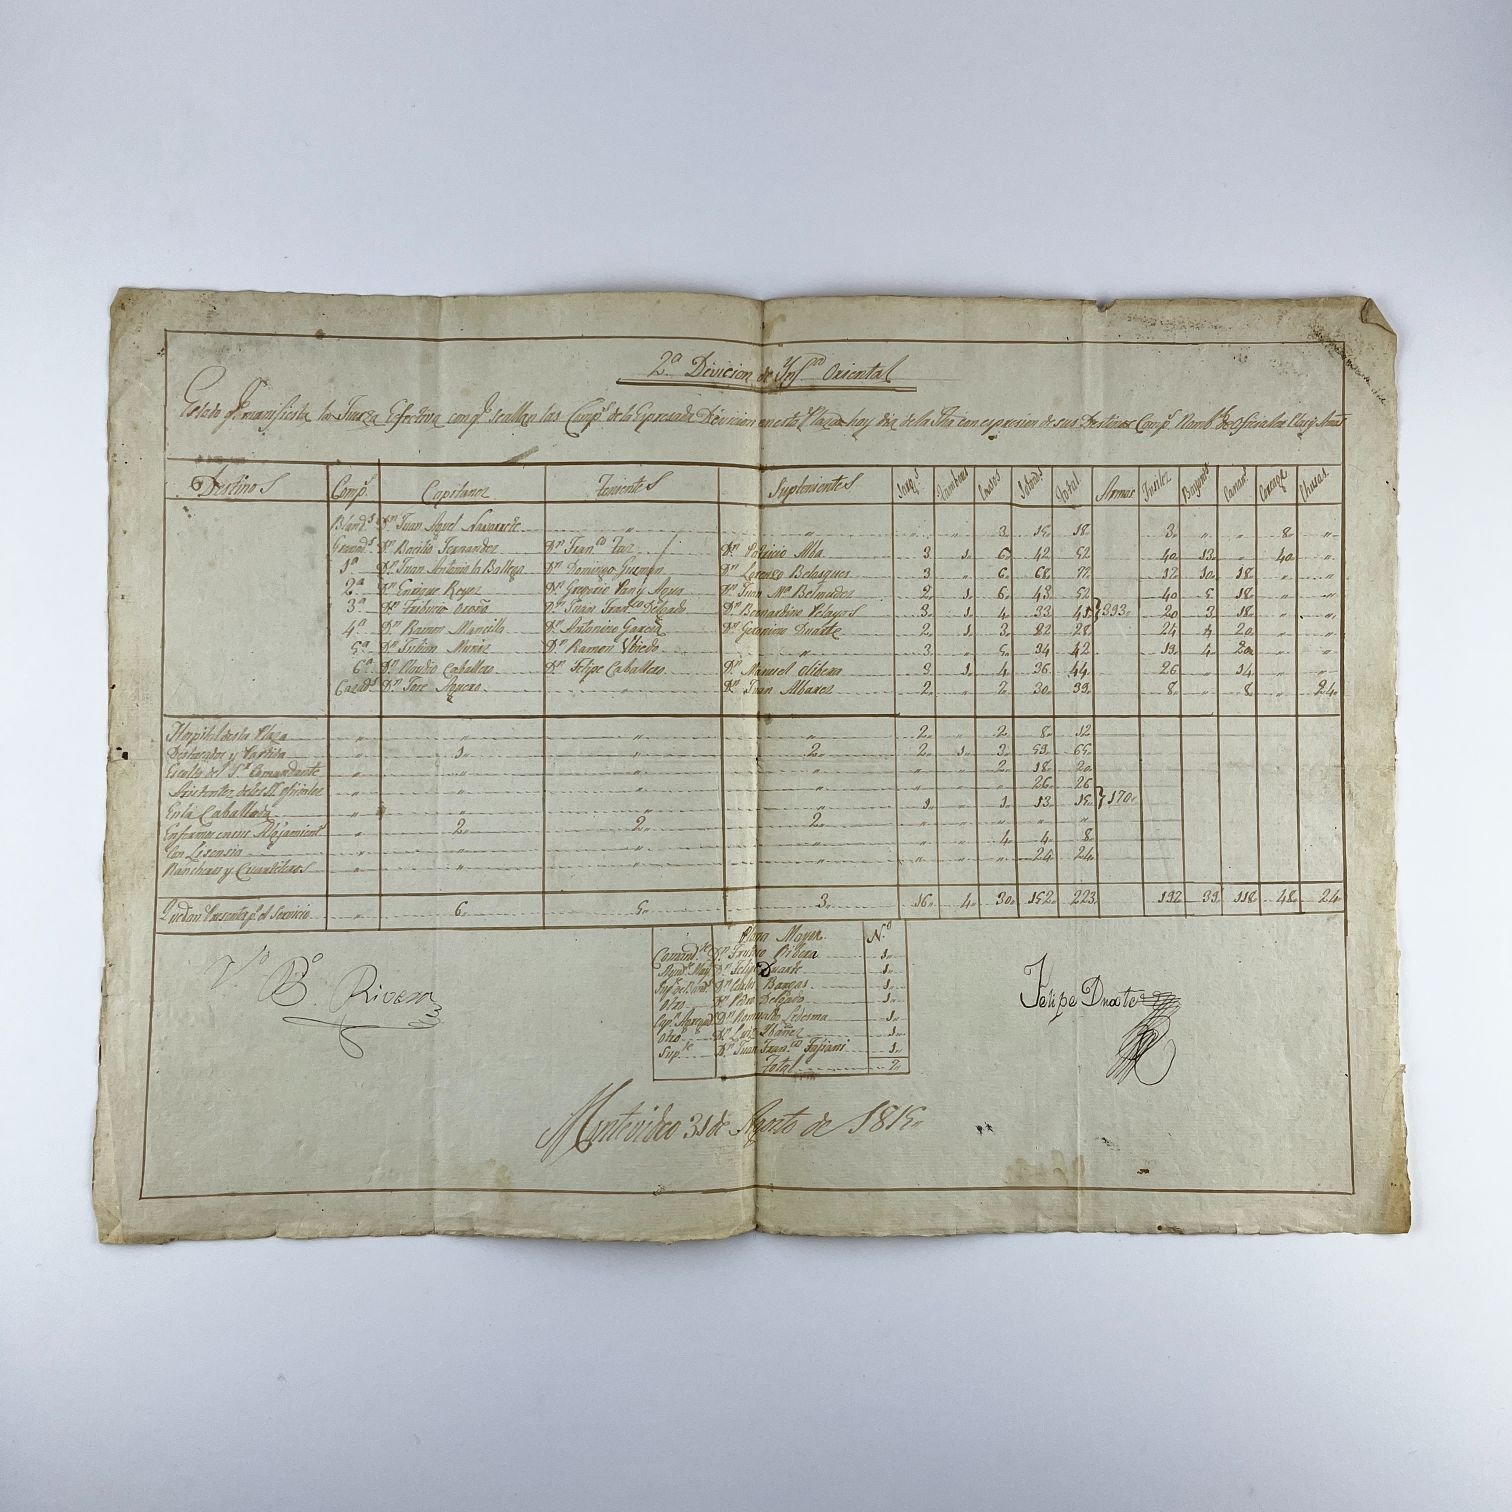 2ª Divicion de Ynfª Oriental
Estado qe manifiesta la Fuerza Efectiva con qe se allan las Compª de la Epresada Divicion en esta Plaza hoy dia de la Fha con espresion de sus Destinos Compª Nombe de Oficiales Clas y Armas
Destinos Compª Capitanes Tenientes Suplentes Sargs Tambores Cavos Soldads Total Armas Fusiles Bayons Canans Correage Chusas
Blands Dn Juan Angel Navarrete " " " " 3 15 18 3 " " 8 "
Granads Dn Bacilio Fernandez Dn Franco Dn Patricio Alba 3 1 6 42 52 40 13 " 40 "
1ª Dn Juan Antonio la Balleja Dn Domingo Guzman Dn Lorenzo Belasques 3 " 6 68 77 17 10 18 " "
2ª Dn Enrique Reyes Dn Gregorio Pan y Agua Dn Juan Mª Belmudes 2 1 6 43 52 40 5 18 " "
3ª Dn Tiburcio Dn Juan Franco Delgado Dn Bernardino Pelayos 3 1 4 33 41 393 20 3 18 " "
4ª Dn Ramon Mancilla Dn Antonino Garcia Dn Geronimo Duarte 2 1 3 22 28 24 4 20 " "
5ª Dn Julian Muniz Dn Ramon Ubiedo " 3 " 5 34 42 13 4 20 " "
6ª Dn Claudio Caballero Dn Felipe Caballero Dn Manuel Olibera 3 1 4 36 44 26 " 14 " "
Cazads Dn Jose Aguero " Dn Juan Albares 2 " 7 30 39 8 " 8 " 24
Hospital de esta Plaza " " " " 2 " 2 8 12
Destacados y Partida " 1 " 2 2 1 3 59 65
Escolta del Sr Comandante " " " " " " 2 18 20
Asistentes de los SS. oficiales " " " " " " " 26 26
En la Caballada " " " " 1 " 1 13 15 170
Enfermos en sus Alojamients " 2 2 2 " " " " "
Con Lisensia " " " " " " 4 4 8
Rancheros y Cuarteleros " " " " " " " 24 24
Quedan Presentes pª el Servicio " 6 5 3 16 4 30 152 223 192 39 118 48 24
Plana Mayor Nº
Comandte Dn Frutoso Ribera 1
Ayudte Mayr Dn Felipe Duarte 1
Dn Bargas 1
Otro Dn Pedro Delgado 1
Capn Agregado Dn Romualdo Ledesma 1
Otro Dn Luis Ybañez 1
Supte Dn Juan Franco 1
Total 7
Vº Bº Rivera
Felipe Duarte
Montevideo 31 de Agosto de 1815